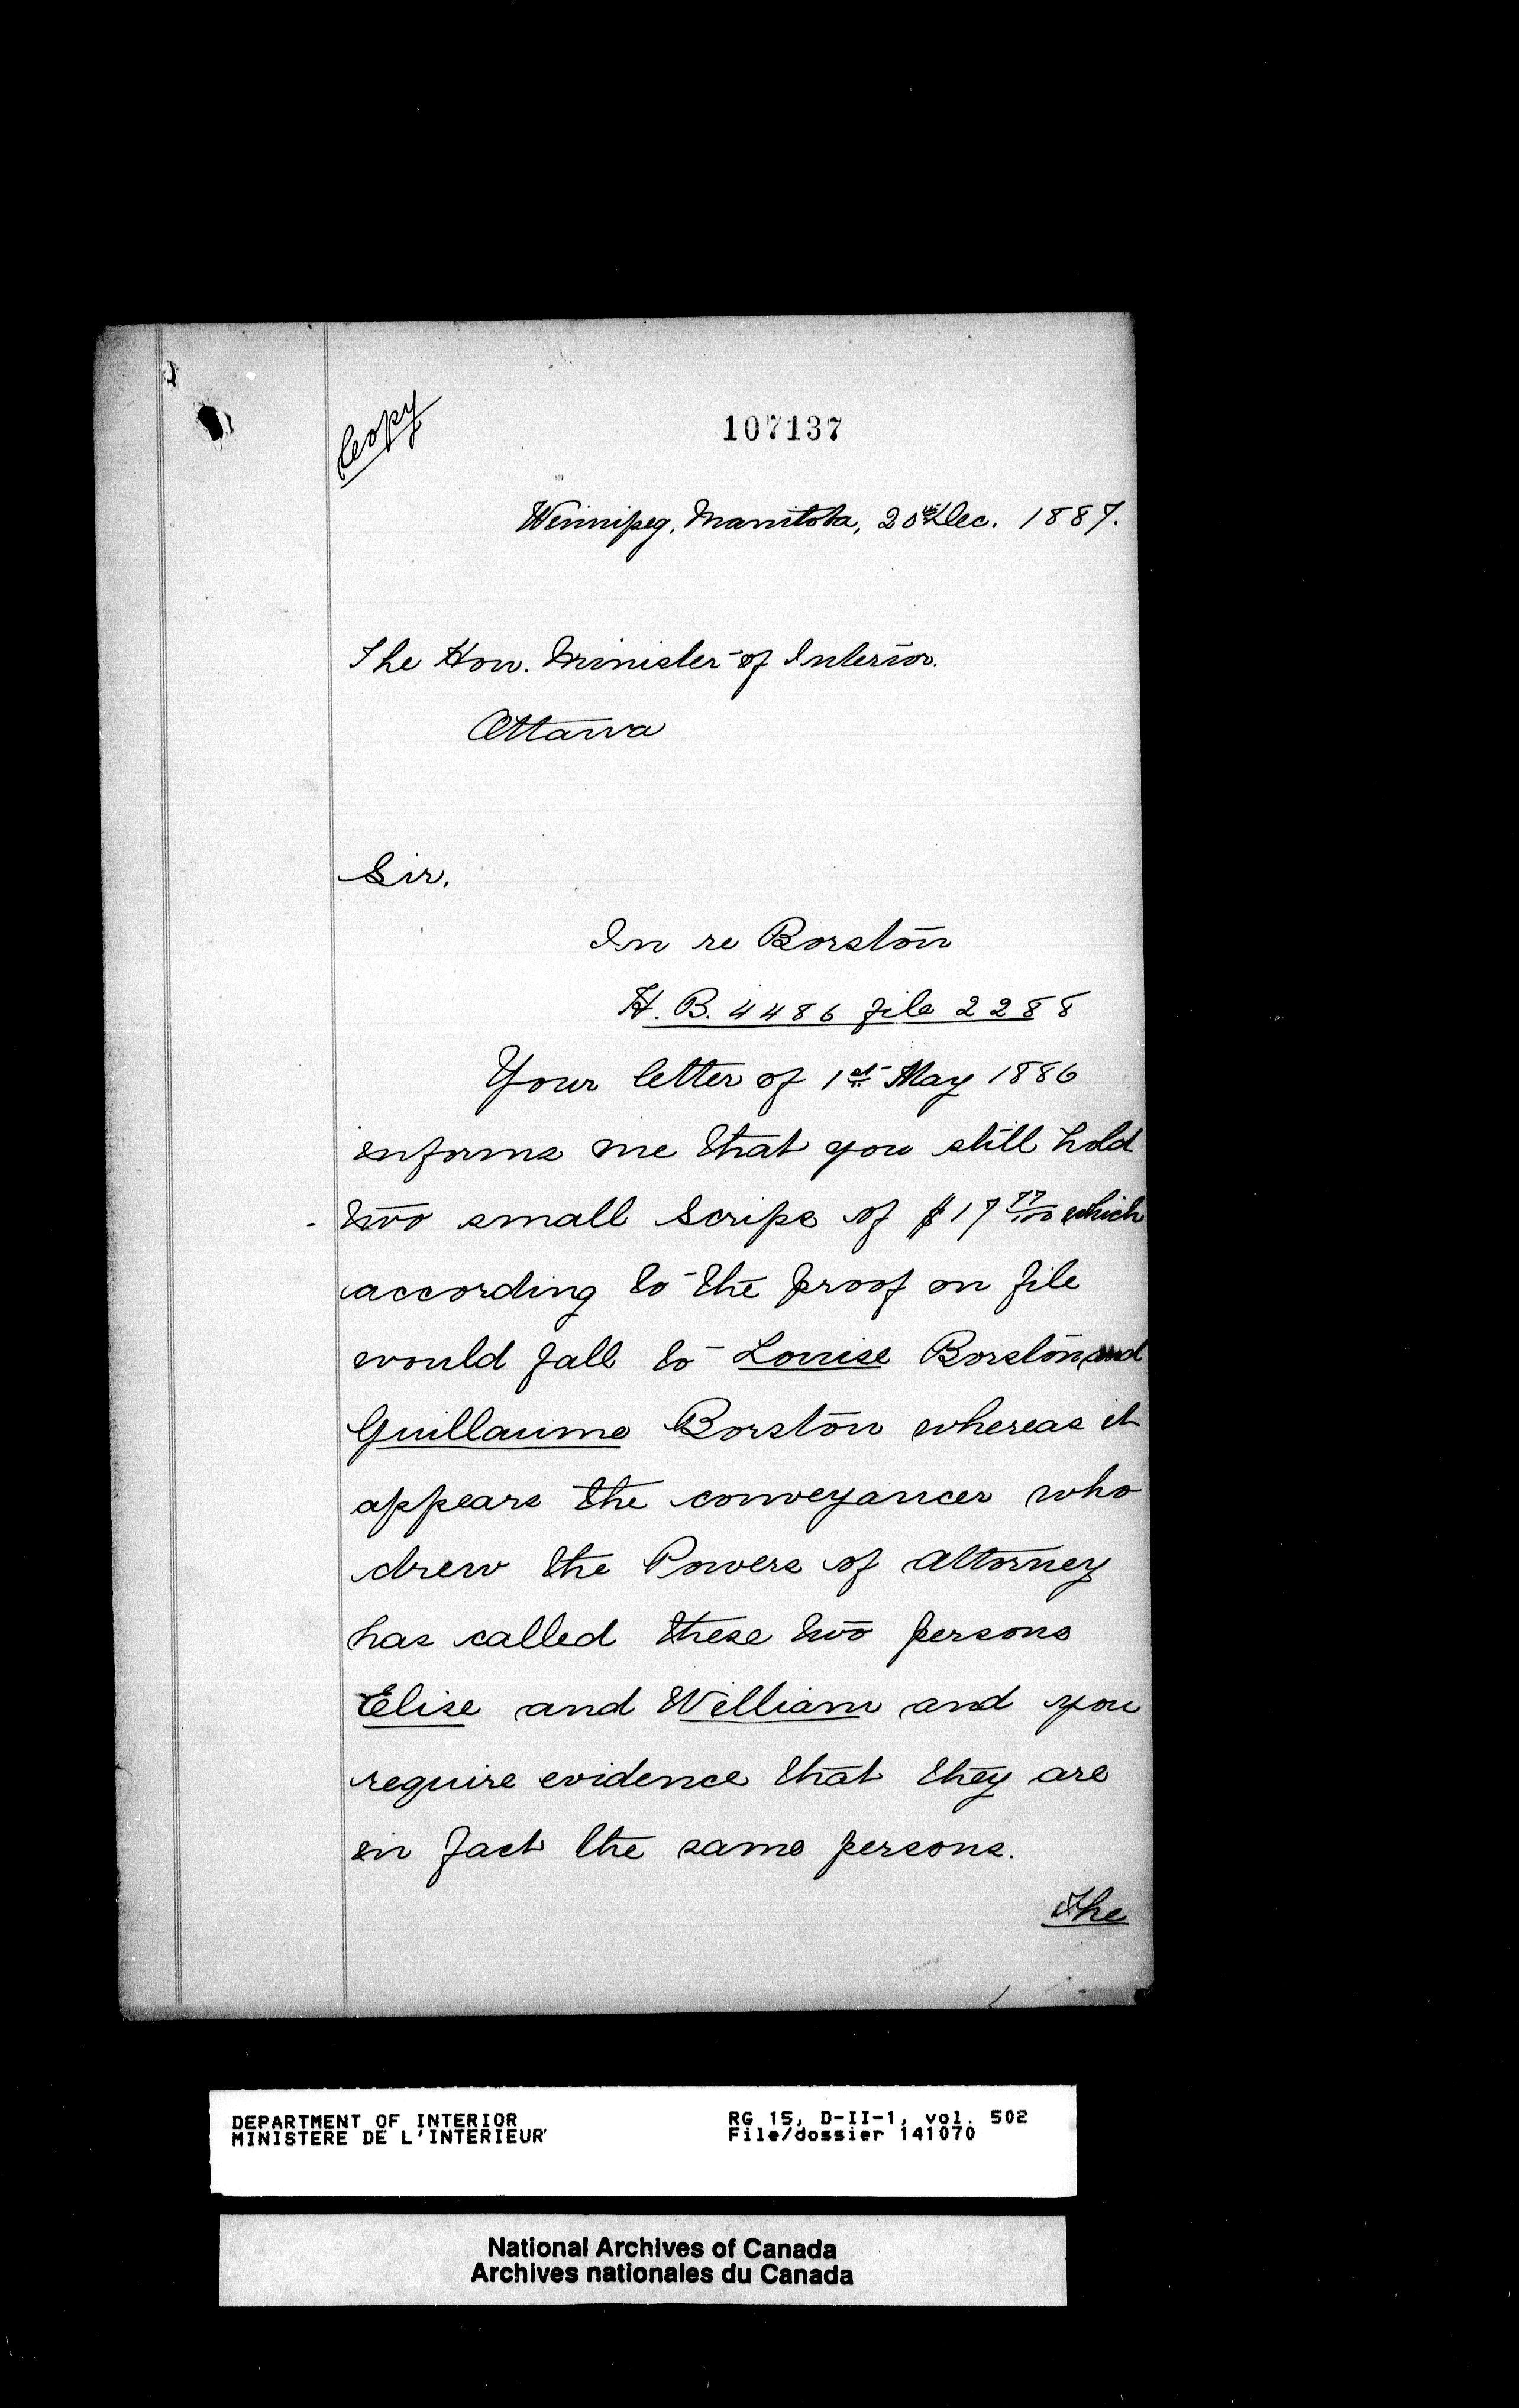 Copy
107137
Winnipeg, Manitoba, 20th Dec. 1887.
The Hon. Minister of Interior.
Ottawa
Sir.
In re Borston
H. B. 4486 file 2288
Your letter of 1st May 1886
informs me that you still hold
two small Scrips of $17 77/100 which
according to the proof on file
would fall to Louise Borston and
Guillaume Borston whereas it
appears the conveyancer who
drew the Powers of Attorney
has called these two persons
Elise and William and you
require evidence that they are
in fact the same persons.
The
DEPARTMENT OF INTERIOR
MINISTERE DE L'INTERIEUR
RG 15, D-II-1, vol. 502
File/dossier 141070
National Archives of Canada
Archives nationales du Canada